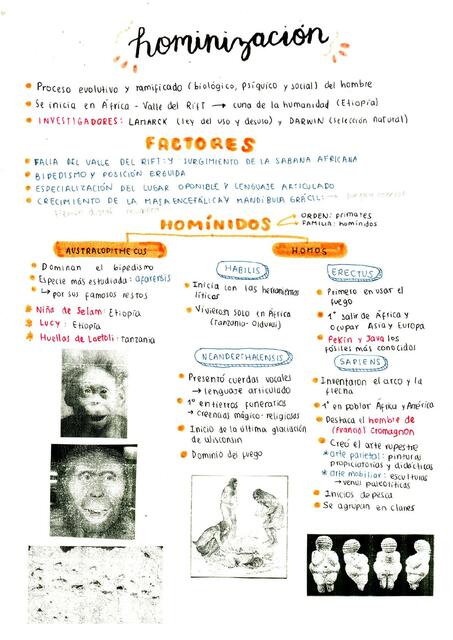 hominización
Proceso evolutivo y ramificado (biológico, psíquico y social) del hombre
Se inicia en África - Valle del Rift → cuna de la humanidad (Etiopía)
INVESTIGADORES: LAMARCK (ley del uso y desuso) y DARWIN (selección natural)
FACTORES
FALLA DEL VALLE DEL RIFT: Y SURGIMIENTO DE LA SABANA AFRICANA
BIPEDISMO Y POSICIÓN ERGUIDA
ESPECIALIZACIÓN DEL LUGAR OPONIBLE Y LENGUAJE ARTICULADO
CRECIMIENTO DE LA MASA ENCEFÁLICA Y MANDÍBULA GRÁCIL:
HOMÍNIDOS
ORDEN: primates
FAMILIA: homínidos
AUSTRALOPITHECUS
Dominan el bipedismo
Especie más estudiada: afarensis
↳ por sus famosos restos
Niña de Selam: Etiopía
Lucy: Etiopía
Huellas de Laetoli: Tanzania
HOMOS
HABILIS
Inicia con las herramientas
líticas
Vivieron solo en África
(Tanzania - Olduvai)
ERECTUS
Primero en usar el
fuego
1° salir de África y
ocupar Asia y Europa
Pekín y Java los
fósiles más conocidos
NEANDERTHALENSIS
Presentó cuerdas vocales
→ lenguaje articulado
1° en tierros funerarios
→ creencias mágico-religiosas
Inicio de la última glaciación
de wisconsin
Dominio del fuego
SAPIENS
Inventaron el arco y la
flecha
1° en poblar África y América
Destaca el hombre de
(Francia) Cromagnon
Creó el arte rupestre
*arte parietal: pinturas
propiciatorias y didácticas
*arte mobiliar: esculturas
→ venus paleolíticas
Inicios de pesca
Se agrupan en clanes